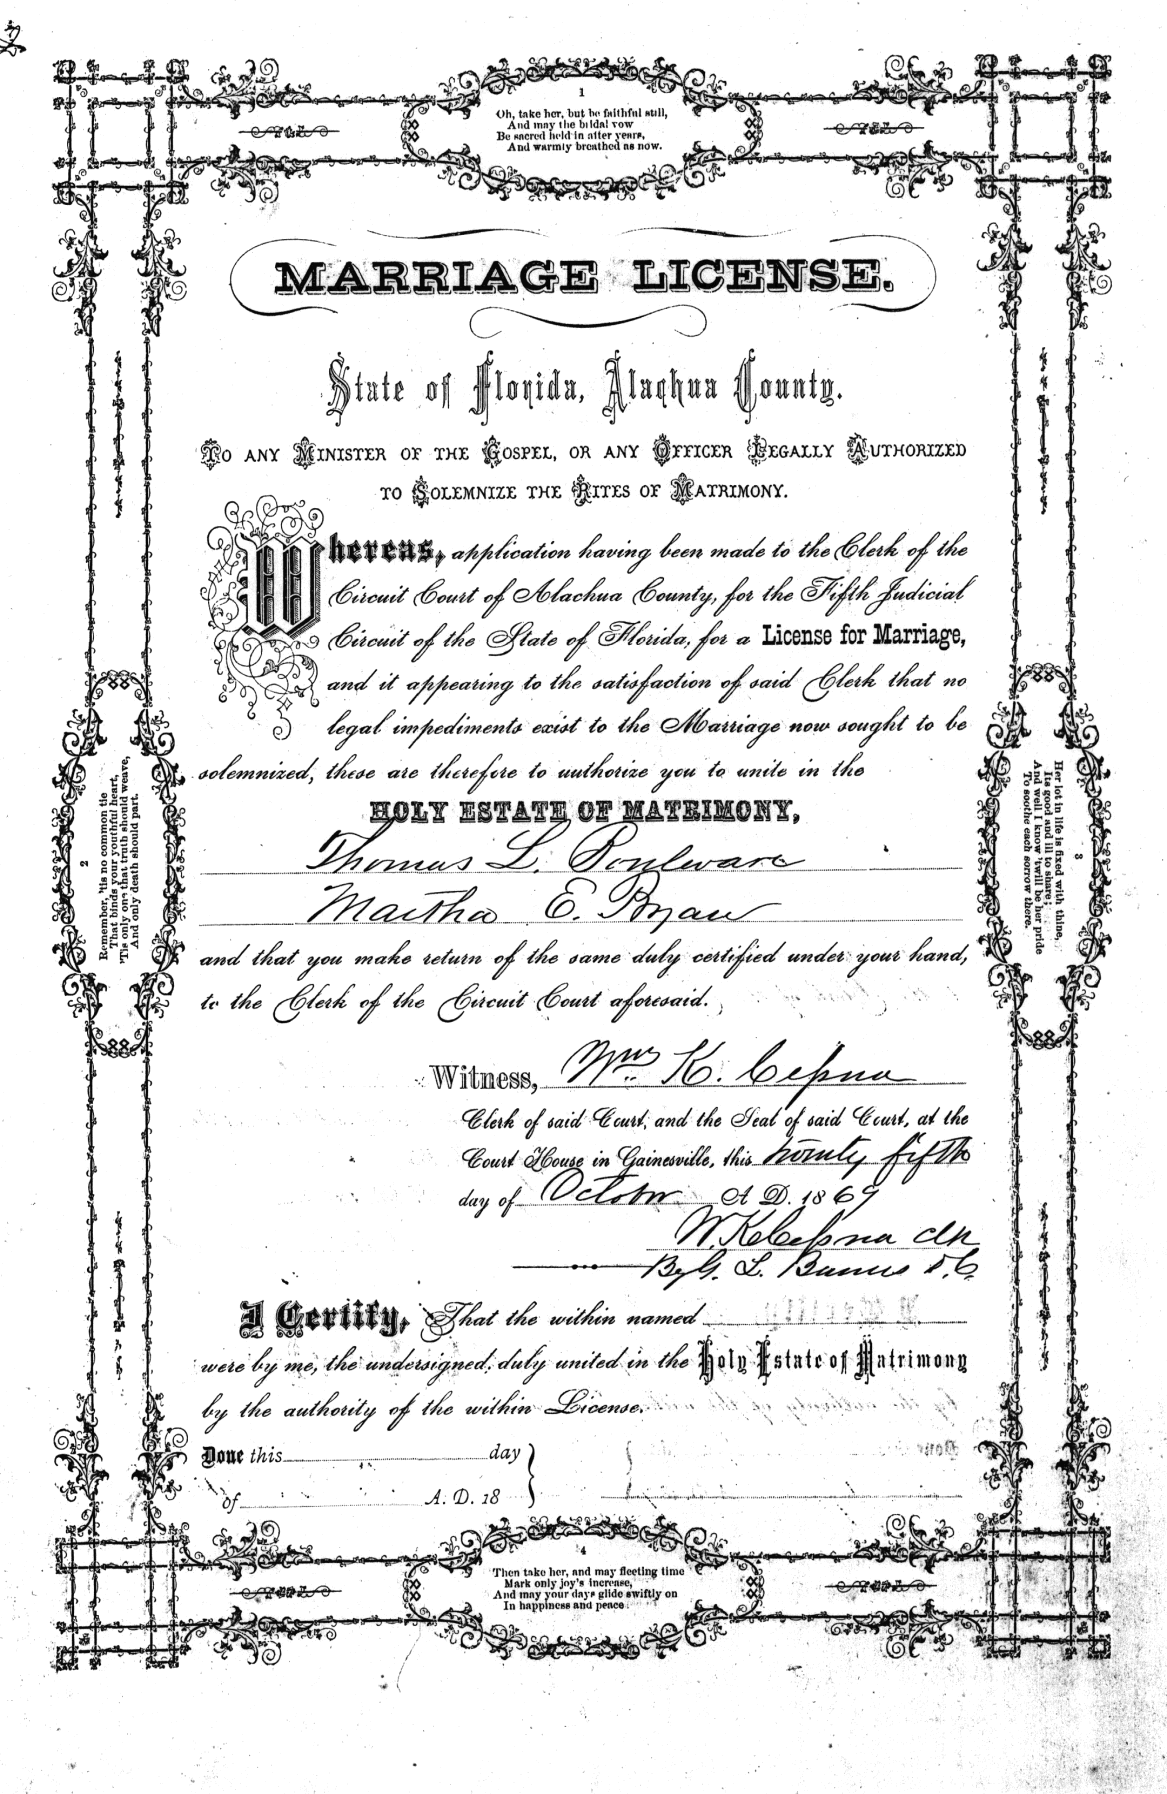 1
Oh, take her, but be faithful still,
And may the bridal vow
Be sacred held in after years,
And warmly breathed as now.
MARRIAGE LICENSE.
State of Florida, Alachua County.
TO ANY MINISTER OF THE GOSPEL, OR ANY OFFICER LEGALLY AUTHORIZED
TO SOLEMNIZE THE RITES OF MATRIMONY.
Whereas, application having been made to the Clerk of the
Circuit Court of Alachua County, for the Fifth Judicial
Circuit of the State of Florida, for a License for Marriage,
and it appearing to the satisfaction of said Clerk that no
legal impediments exist to the Marriage now sought to be
solemnized, these are therefore to authorize you to unite in the
HOLY ESTATE OF MATRIMONY,
Thomas L. Boulware
Martha E. Bryan
and that you make return of the same duly certified under your hand,
to the Clerk of the Circuit Court aforesaid.
Witness, Wm K. Cessna
Clerk of said Court, and the Seal of said Court, at the
Court House in Gainesville, this twenty fifth
day of October A. D. 1869
W. K. Cessna Clk
By G. L. D. C.
I Certify, That the within named
were by me, the undersigned, duly united in the Holy Estate of Matrimony
by the authority of the within License.
Done this day
of A. D. 18
2
Remember, 'tis no common tie
That binds your youthful heart,
'Tis only one that truth should weave,
And only death should part.
3
Her lot in life is fixed with thine,
Its good and ill to share;
And well I know 'twill be her pride
To soothe each sorrow there.
4
Then take her, and may fleeting time
Mark only joy's increase,
And may your days glide swiftly on
In happiness and peace.